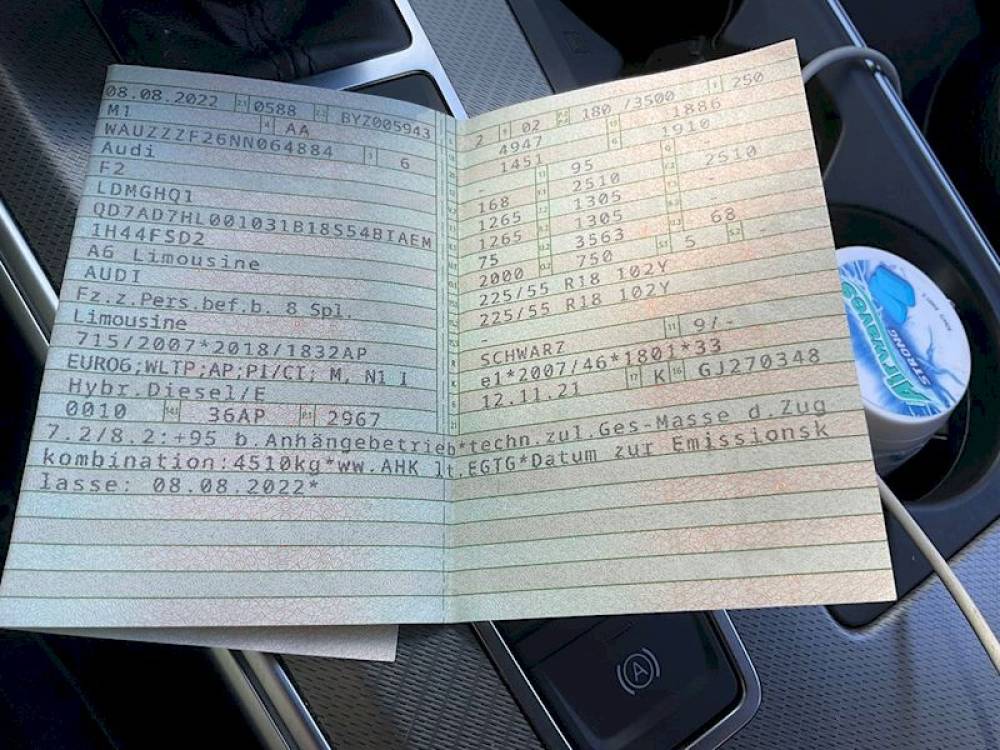 08.08.2022 0588 BYZ005943
M1 AA
WAUZZZF26NN064884 6
Audi
F2
LDMGHQ1
QD7AD7HL001031B18S54BIAEM
1H44FSD2
A6 Limousine
AUDI
Fz.z.Pers.bef.b. 8 Spl.
Limousine
715/2007*2018/1832AP
EURO6;WLTP;AP;PI/CI; M, N1 I
Hybr.Diesel/E
0010 36AP 2967
2 02 180 /3500 250
4947 1886
- 1451 1910
168 95 -
1265 2510 2510
1265 1305 -
75 1305 -
2000 3563 68
225/55 R18 102Y 750 5 -
225/55 R18 102Y
-
SCHWARZ 9/-
e1*2007/46*1801*33
12.11.21 K GJ270348
7.2/8.2:+95 b.Anhängebetrieb*techn.zul.Ges-Masse d.Zug
kombination:4510kg*ww.AHK lt.EGTG*Datum zur Emissionsk
lasse: 08.08.2022*
Airwaves
STRONG
A